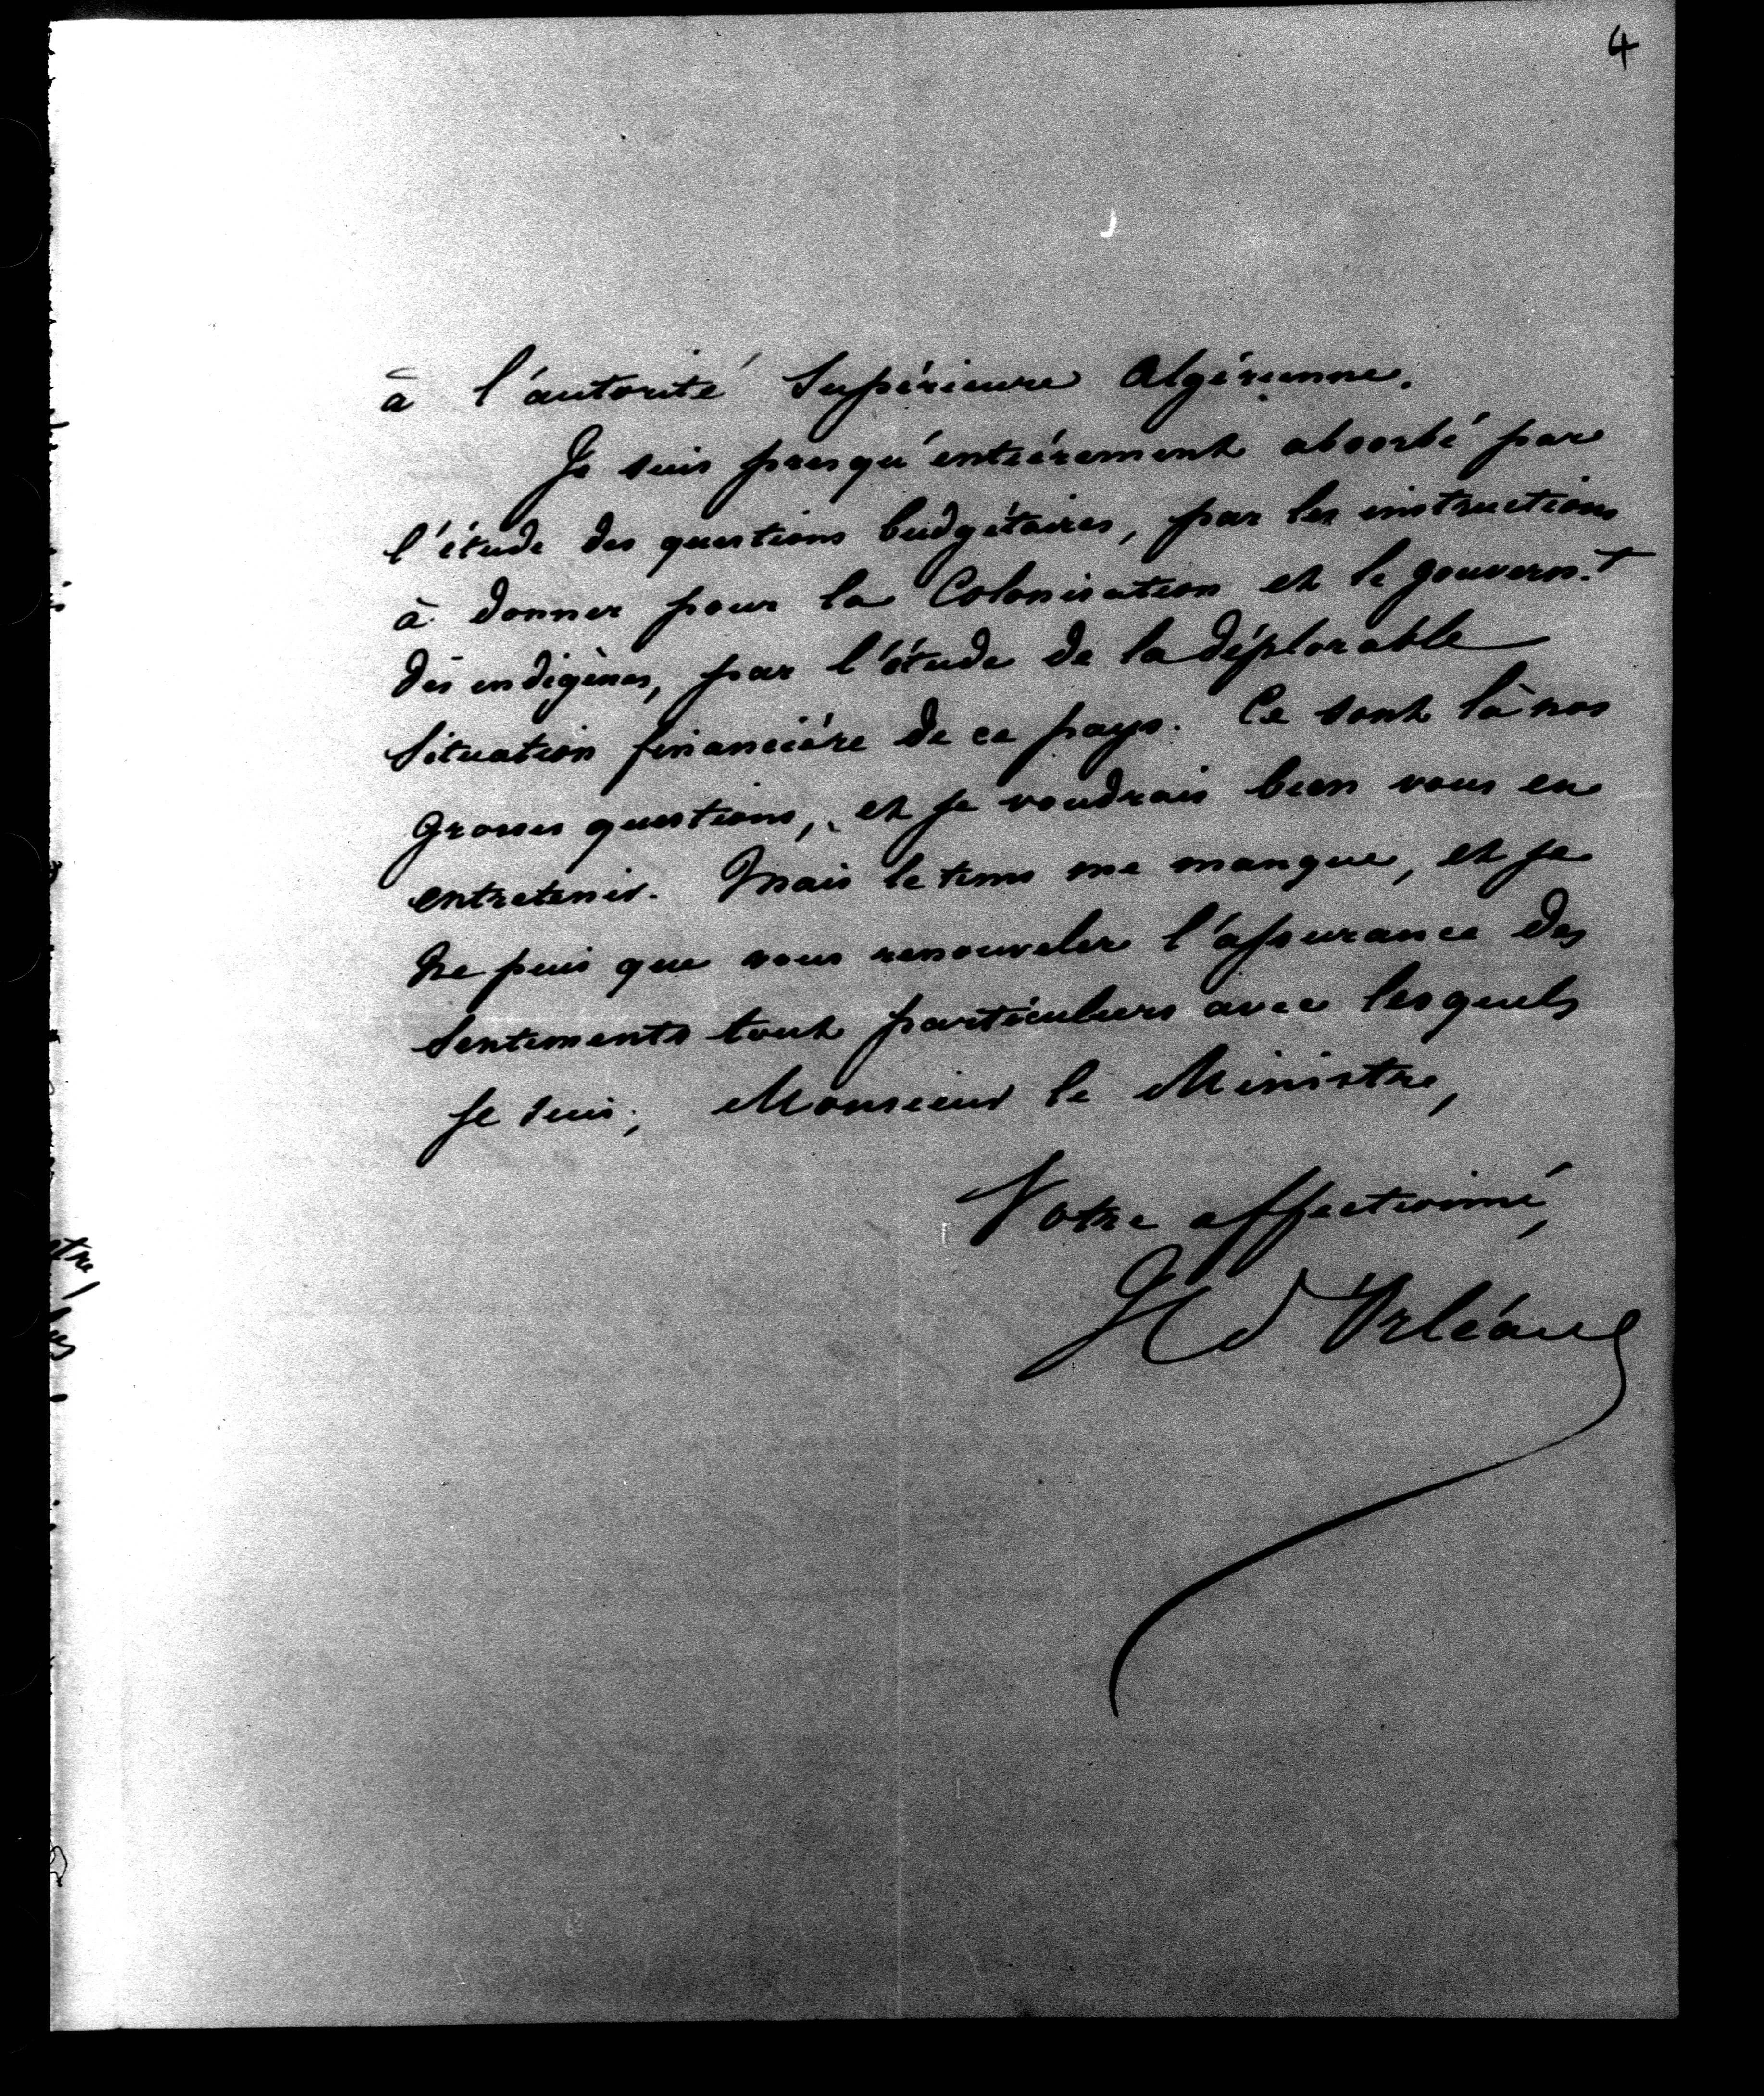 4
à l'autorité Supérieure Algérienne.
Je suis presqu'entièrement absorbé par
l'étude des questions budgétaires, par les instructions
à donner pour la Colonisation et le gouvern.t
des indigènes, par l'étude de la déplorable
situation financière de ce pays. Ce sont là nos
grosses questions, et je voudrais bien vous en
entretenir. Mais le tems me manque, et je
ne puis que vous renouveler l'assurance des
sentiments tout particuliers avec lesquels
je suis, Monsieur le Ministre,
Votre affectionné,
H d'Orléans